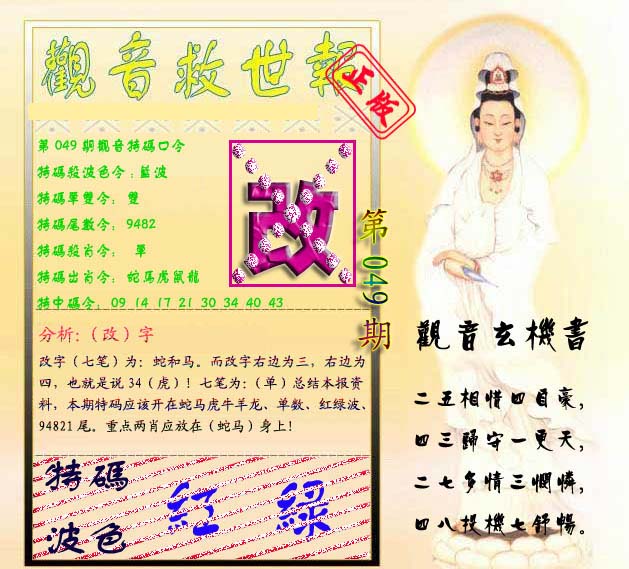 觀音救世報
正版
第049期觀音特碼口令
特碼殺波色令：藍波
特碼單雙令：雙
特碼尾數令：9482
特碼殺肖令：單
特碼出肖令：蛇馬虎鼠龍
特中碼令：09 14 17 21 30 34 40 43
改
第049期
分析:（改）字
改字（七笔）为：蛇和马。而改字右边为三，右边为
四，也就是说34（虎）！七笔为：（单）总结本报资
料，本期特码应该开在蛇马虎牛羊龙、单数、红绿波、
94821尾。重点两肖应放在（蛇马）身上！
特碼
波色
紅 綠
觀音玄機書
二五相惜四目豪，
四三歸守一更天，
二七多情三憫憐，
四八投機七舒暢。